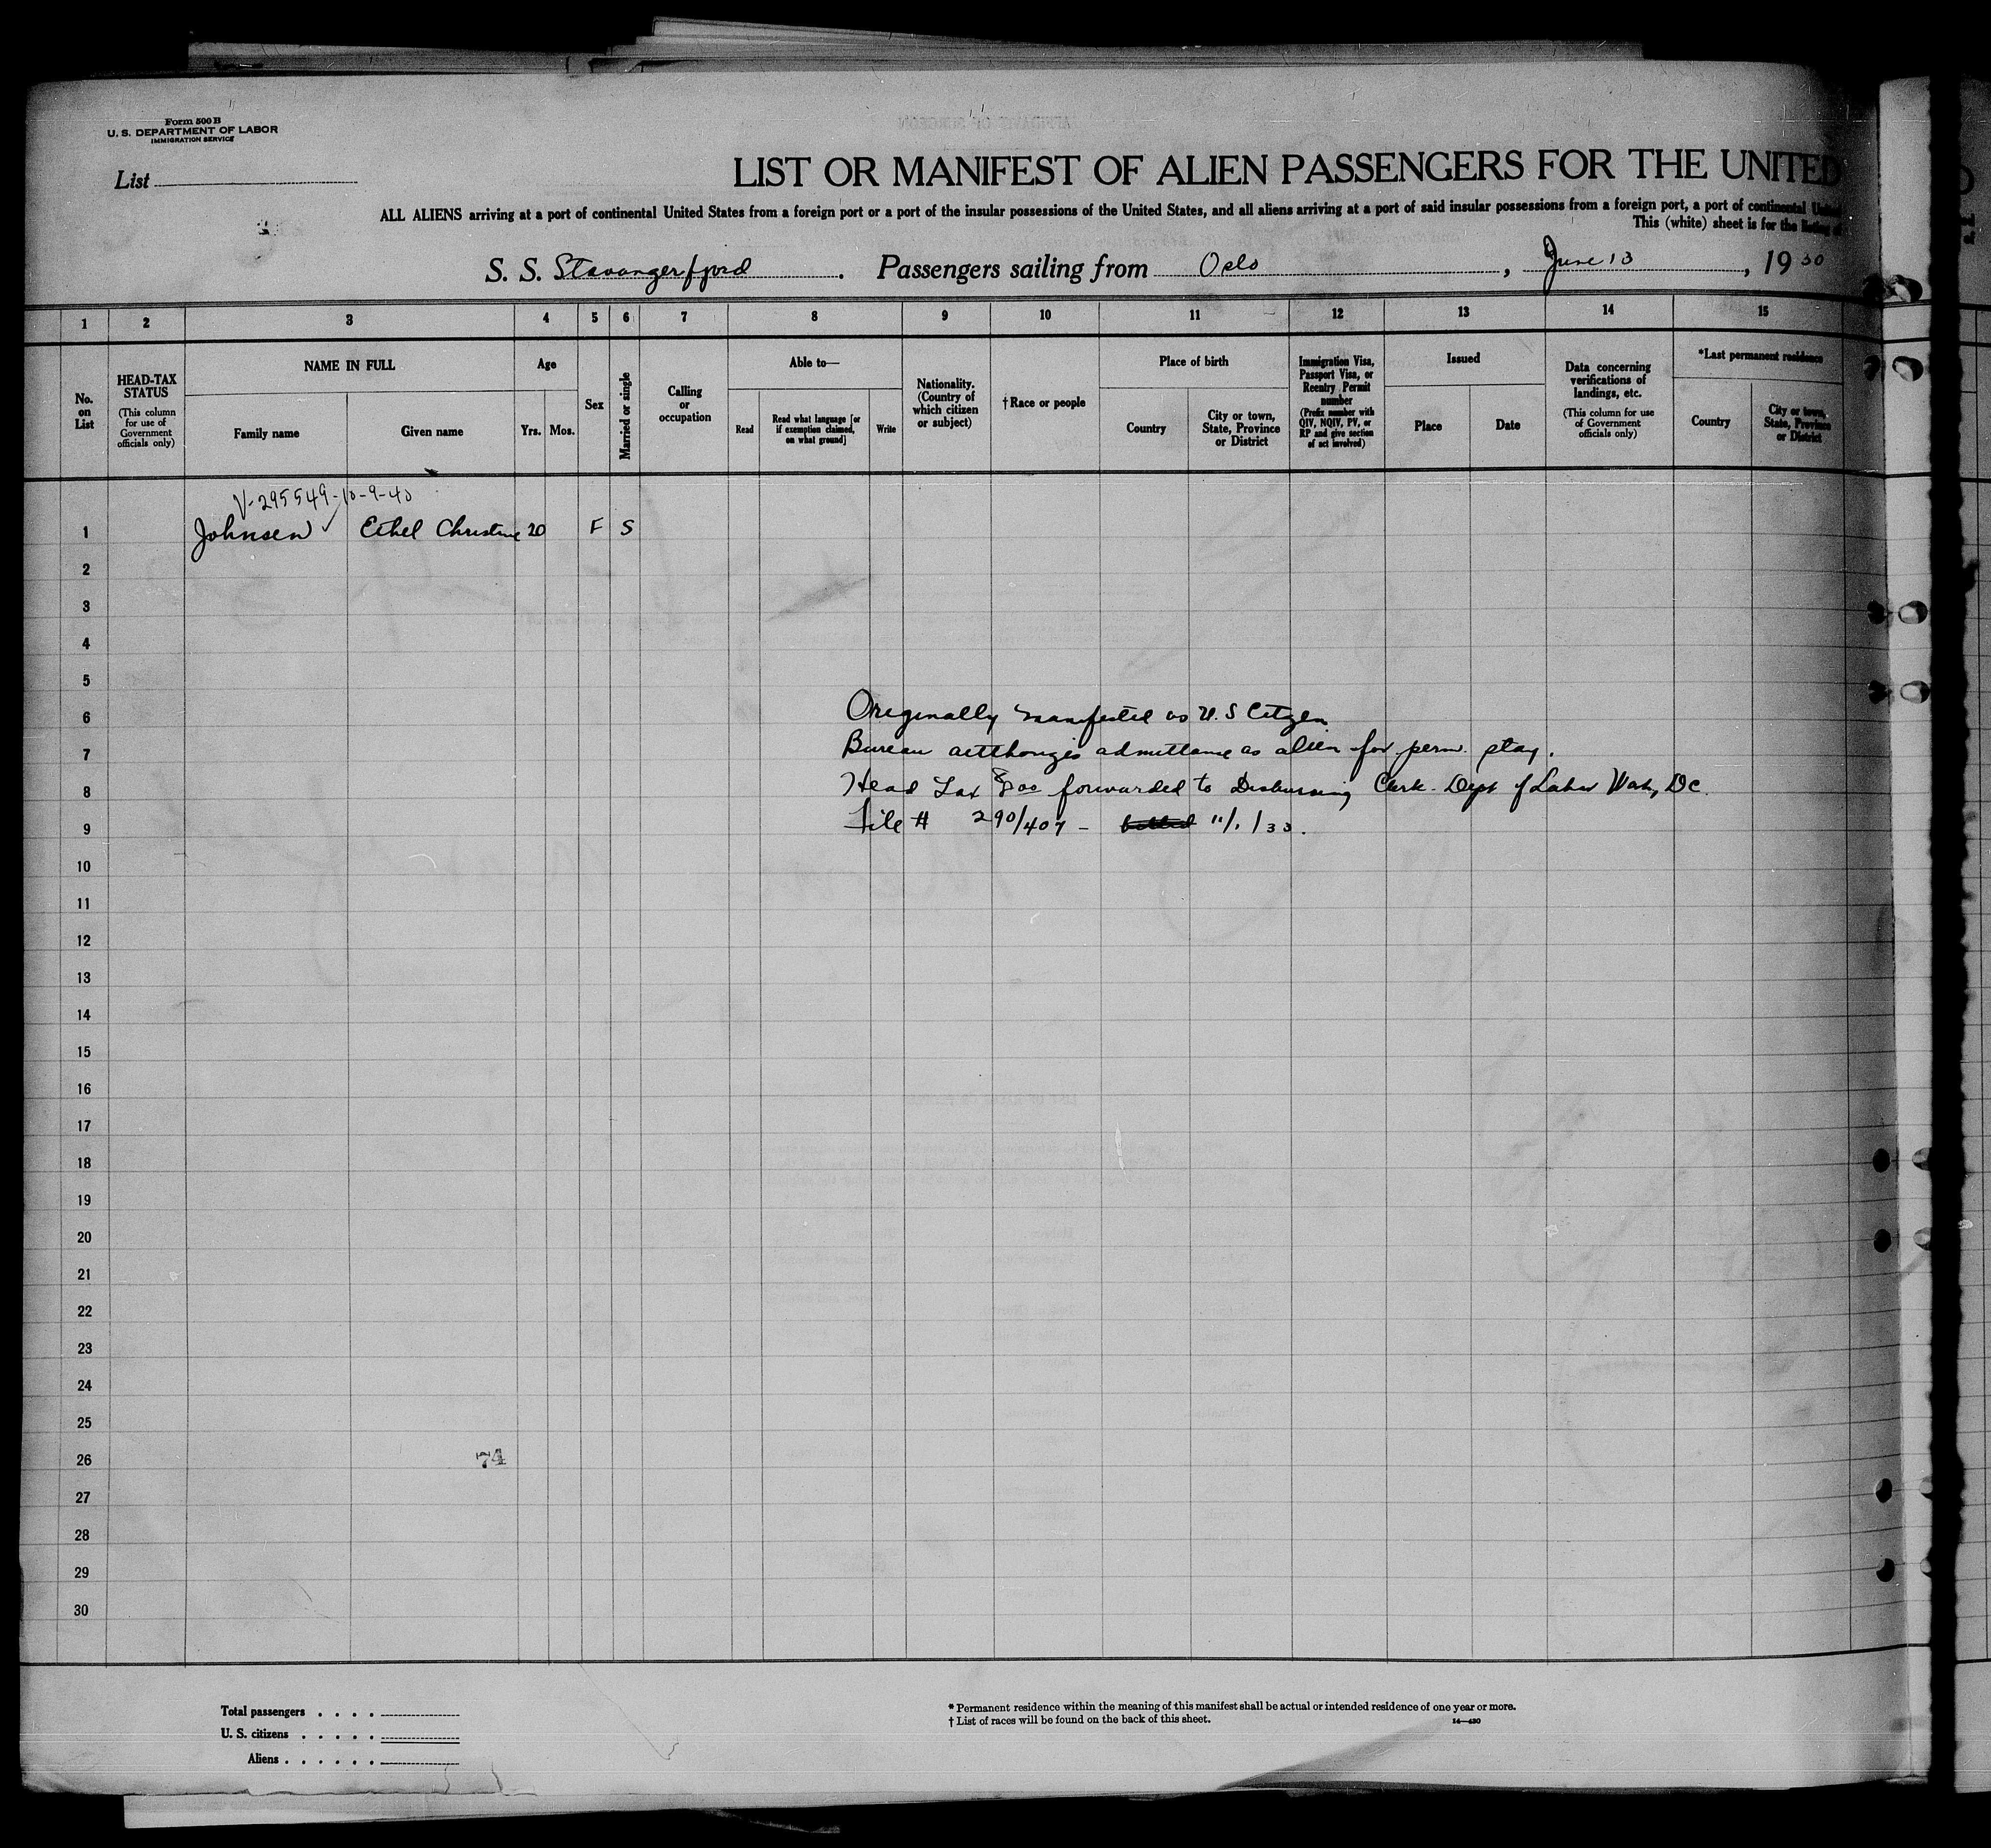 Form 500 B
U. S. DEPARTMENT OF LABOR
IMMIGRATION SERVICE
List
LIST OR MANIFEST OF ALIEN PASSENGERS FOR THE UNITED
ALL ALIENS arriving at a port of continental United States from a foreign port or a port of the insular possessions of the United States, and all aliens arriving at a port of said insular possessions from a foreign port, a port of continental United
This (white) sheet is for the listing of
S. S. Stavangerfjord . Passengers sailing from Oslo , June 13 , 19 30
1 2 3 4 5 6 7 8 9 10 11 12 13 14 15
No. on List
HEAD-TAX STATUS
(This column for use of Government officials only)
NAME IN FULL
Family name
Given name
Age
Yrs. Mos.
Sex
Married or single
Calling or occupation
Able to—
Read
Read what language [or if exemption claimed, on what ground]
Write
Nationality. (Country of which citizen or subject)
† Race or people
Place of birth
Country
City or town, State, Province or District
Immigration Visa, Passport Visa, or Reentry Permit number
(Prefix number with QIV, NQIV, PV, or RP and give section of act involved)
Issued
Place
Date
Data concerning verifications of landings, etc.
(This column for use of Government officials only)
*Last permanent residence
Country
City or town, State, Province or District
V-295549-10-9-40
1 Johnsen ✓ Ethel Christine 20 F S
2
3
4
5
6 Originally manifested as U. S Citizen
7 Bureau authorizes admittance as alien for perm. stay.
8 Head Tax 8 00 forwarded to Disbursing Clerk. Dept of Labor Wash, DC.
9 File # 290/407 - 11/1/33.
10
11
12
13
14
15
16
17
18
19
20
21
22
23
24
25
26
74
27
28
29
30
Total passengers . . . .
U. S. citizens . . . . .
Aliens . . . . . .
* Permanent residence within the meaning of this manifest shall be actual or intended residence of one year or more.
† List of races will be found on the back of this sheet.
14—430